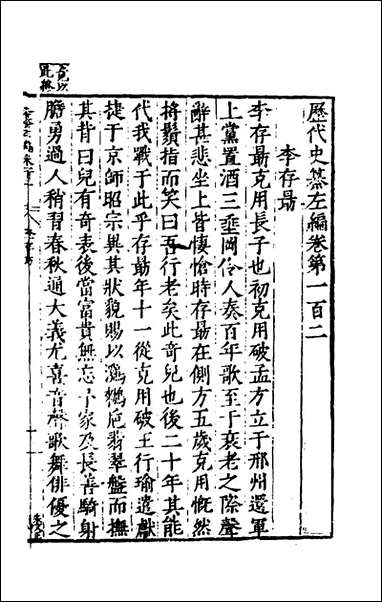 歷代史纂左編卷第一百二
李存勗
李存勗克用長子也初克用破孟方立于邢州還軍
上黨置酒三垂岡伶人奏百年歌至于衰老之際聲
辭甚悲坐上皆悽愴時存勗在側方五歲克用慨然
將鬚指而笑曰吾行老矣此奇兒也後二十年其能
代我戰于此乎存勗年十一從克用破王行瑜遣獻
捷于京師昭宗異其狀貌賜以鸂鶒巵翡翠盤而撫
其背曰兒有奇表後當富貴無忘予家及長善騎射
膽勇過人稍習春秋通大義尤喜音聲歌舞俳優之